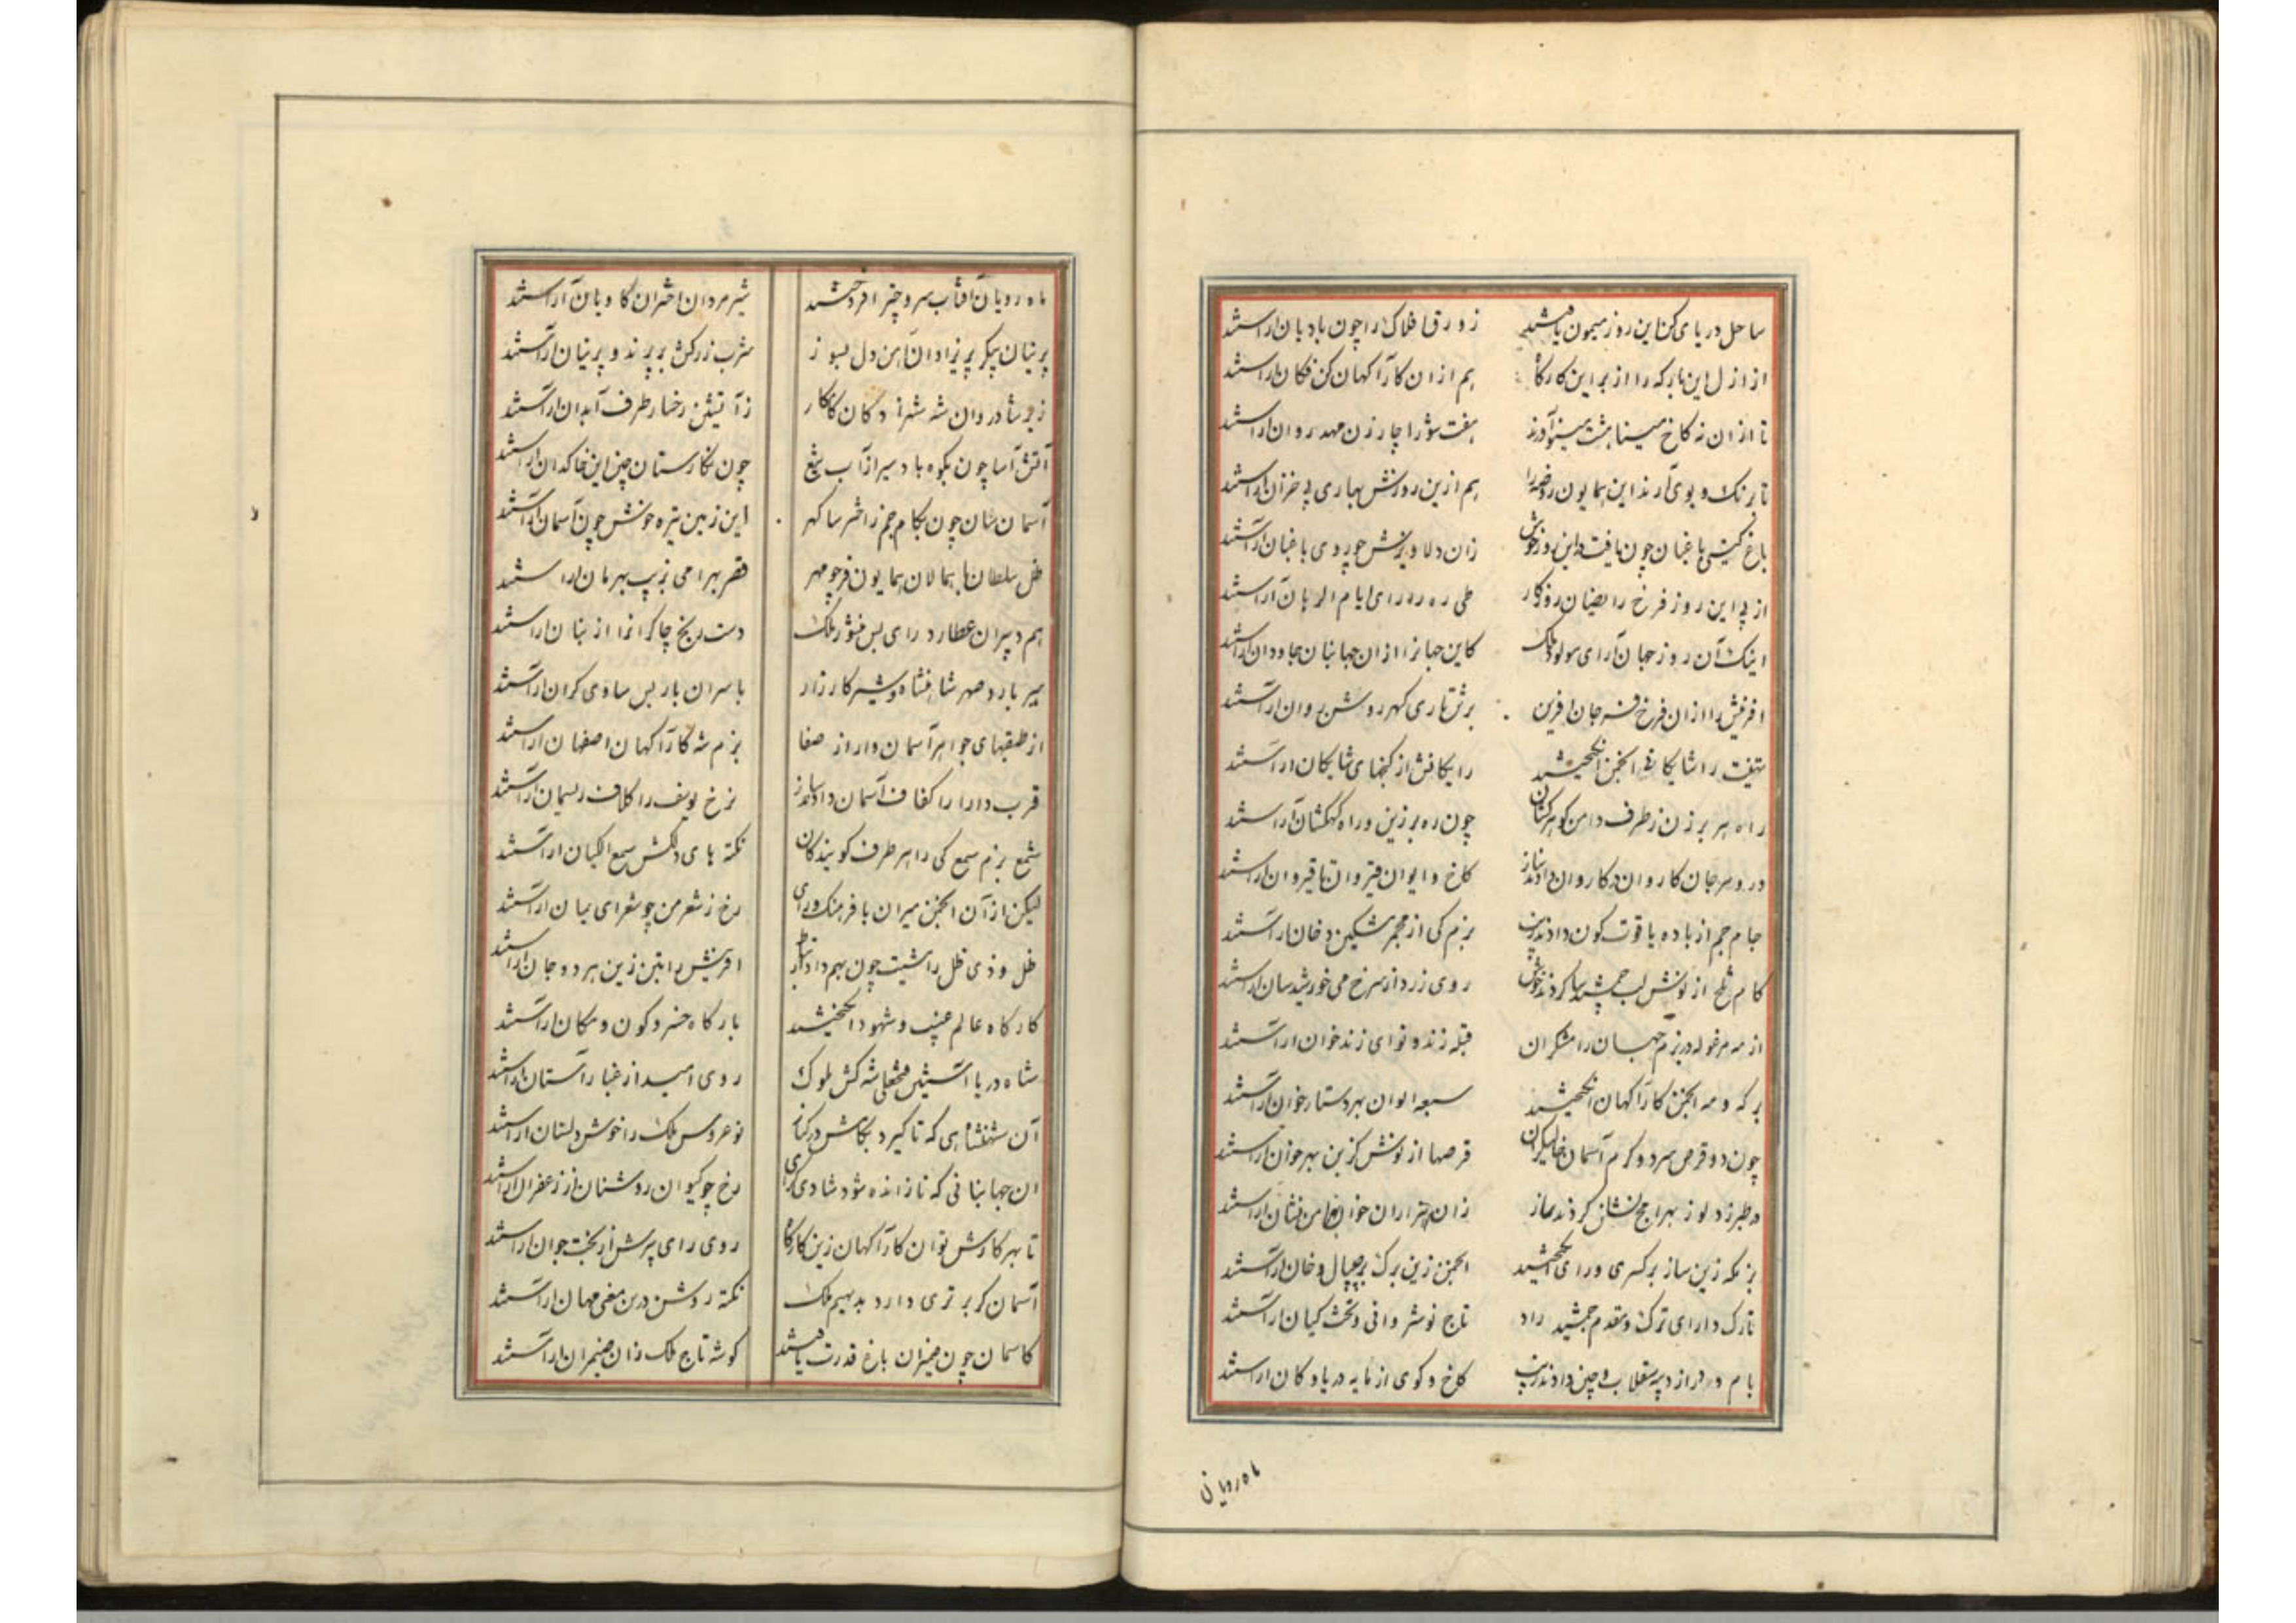 ساحل دریای کن این روز میمون یافتند زورق افلاک را چون بادبان آراستند
از ازل این بارکه را از بر این کارگاه هم از آن کارآگهان کن فکان آراستند
تا از آن نه کاخ مینا هشت مینو آورند هفت شو را چار زن مهد روان آراستند
تا برنک و بوی آرند این همایون روضه را هم ازین روزش بهاری بی خزان آراستند
باغ کیتی باغبان چون یافت از این روز خوش زان دلاویزش چو روی باغبان آراستند
از پی این روز فرخ رایضان روزکار طی ره را رای ایام الرهان آراستند
اینک آن روز جهان آرای مولود ملک کاین جهانرا از آن جهانبان جاودان آراستند
افرینش را از آن فرخ فر جان افرین برش تاری کهر روشن روان آراستند
هفت را شایکانی انجمن انگیختند رایکانش از کنجهای شایکان آراستند
راه هر برزن ز طرف دامن کوهرکشان چون ره برزین و راه کهکشان آراستند
در و مرجان کاروان در کاروان دادند باز کاخ و ایوان قیروان تا قیروان آراستند
جام جم از باده یاقوت کون دادند زیب بزم کی از مجمر مشکین دخان آراستند
کام تلخ از نوش لب جمشیدسا کردند خوش روی زرد از سرخ می خورشیدسان آراستند
از مه مرغوله در بزم جهان رامشکران قبله زنده نوای زندخوان آراستند
بر که و مه انجمن کارآگهان انگیختند سبعه الوان بهر دستارخوان آراستند
چون دو قرص سرد و کرم آسمان خوالیگران قرصها از نوش کزین بهر خوان آراستند
بزمکه زین ساز بر کسری و رای انگیختند انجمن زین برک بر چیپال و خان آراستند
تارک دارای ترک و مقدم جمشید راد تاج نوشروانی و تخت کیان آراستند
بام و در از دیبه سقلاب و چین دادند زیب کاخ و کوی از مایه دریا و کان آراستند
ماه رویان
ماه رویان آفتاب سر و چتر افروختند شیرمردان اختران کاویان آراستند
پرنیان پیکر پریزادان آهن دل بسوز شرب زرکش بر پرند و پرنیان آراستند
زیر شادروان شه شهزادکان کامکار ز آتشین رخسار طرف آبدان آراستند
آتش آسا چون بکوه باد سیر از آب تیغ چون نکارستان چین این خاکدان آراستند
آسمان شان چون بکام جم ز اخترسا کهر این زمین تیره خوش چون آسمان آراستند
ظل سلطان با همالان همایون فر چو مهر قصر بهرامی بزیب بهرمان آراستند
هم دبیران عطارد رای بس منشور ملک دست رنج چاکرانرا از بنان آراستند
با سران بار بس ساوی کران آراستند
از طبقهای جواهر آسمان وار از صفا بزم شه کارآگهان اصفهان آراستند
قرب دارا را کفاف آسمان دادند ساز نرخ یوسف را کلاف ریسمان آراستند
شمع بزم سمع کی را هر طرف کویندکان نکته های دلکش سمع الکیان آراستند
لیکن از آن انجمن میران با فرهنک و رای رخ ز شعر من چو شعرای یمان آراستند
ظل و ذی ظل راشیت چون بهم دادند افرینش را بتن زین هر دو جان آراستند
کارکاه عالم غیب و شهود انگیختند بارکاه خسرو کون و مکان آراستند
شاه دریا آستین فتحعلی شه کش ملوک روی امید از غبار آستان آراستند
آن شهنشاهی که تا گیرد بکامش در کنار نوعروس ملک را خوش دلستان آراستند
ان جهانبانی که تا زاننده شود شادی کرای رخ چو کیوان روشنان از زعفران آراستند
تا بهر کارش توان کارآگهان زین کارگاه روی رای پیرش از بخت جوان آراستند
آسمان کر برتری دارد بدیهیم ملک نکته روشن درین معنی مهان آراستند
کاسمان چون ضیمران باغ قدرت یافتند کوشه تاج ملک زان ضیمران آراستند